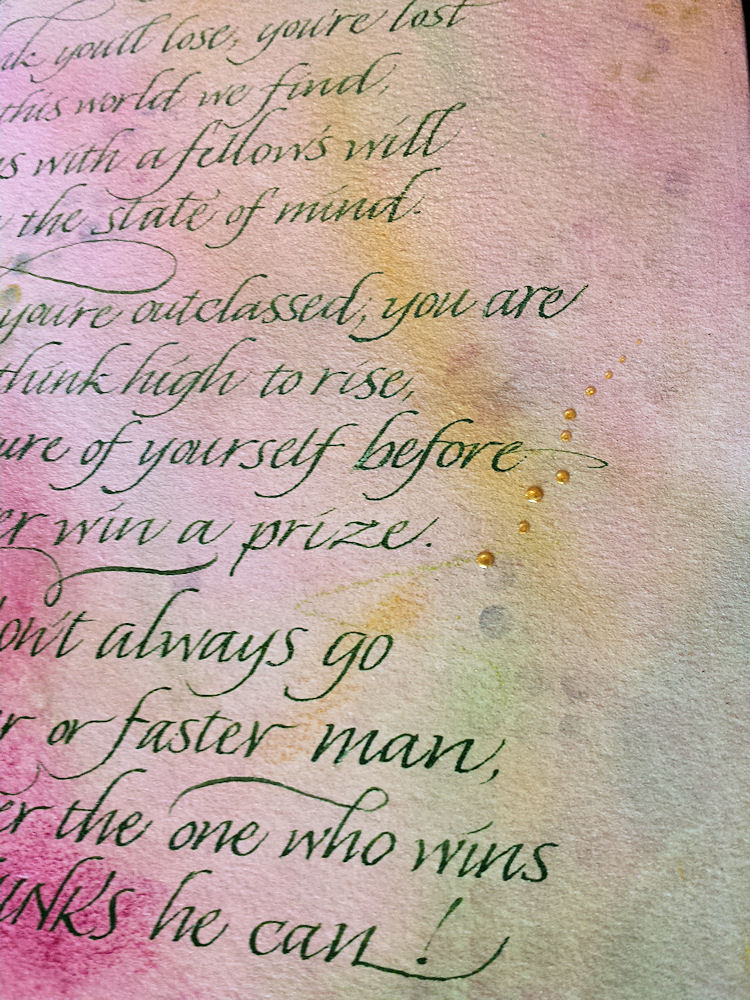 you'll lose, you're lost
this world we find,
s with a fellow's will
the state of mind.
you're outclassed, you are
think high to rise,
ure of yourself before
er win a prize.
on't always go
r or faster man,
er the one who wins
INK'S he can!